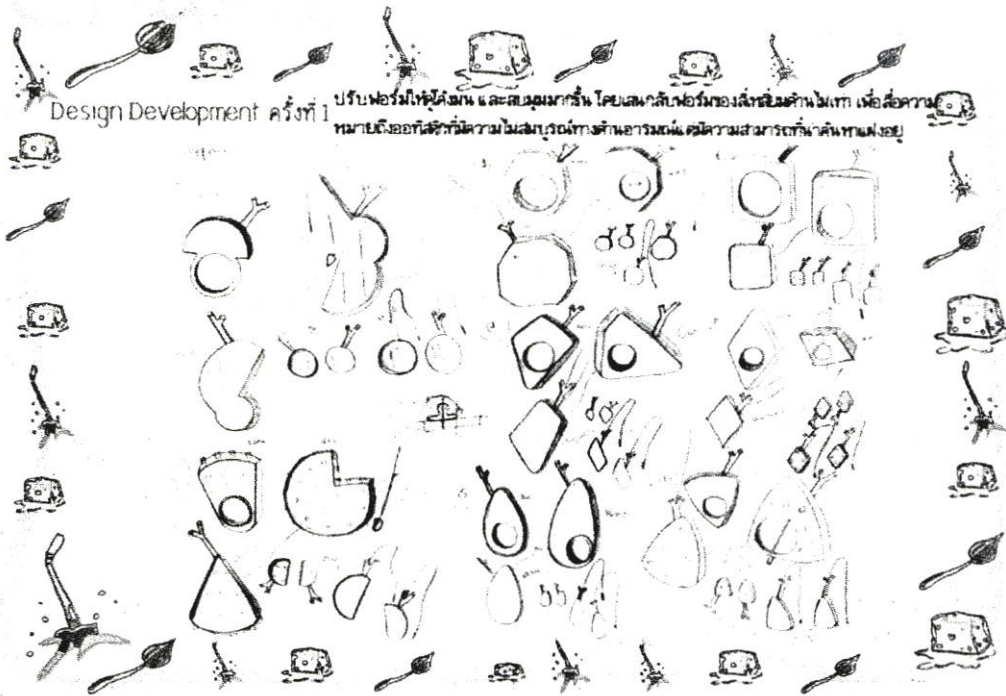 Design Development ครั้งที่ 1
ปรับฟอร์มให้ดูโค้งมน และลบมุมมากขึ้น โดยเล่นกลับฟอร์มของสี่เหลี่ยมด้านไม่เท่า เพื่อสื่อความ
หมายถึงออทิสติกที่มีความไม่สมบูรณ์ทางด้านอารมณ์แต่มีความสามารถที่น่าค้นหาแฝงอยู่